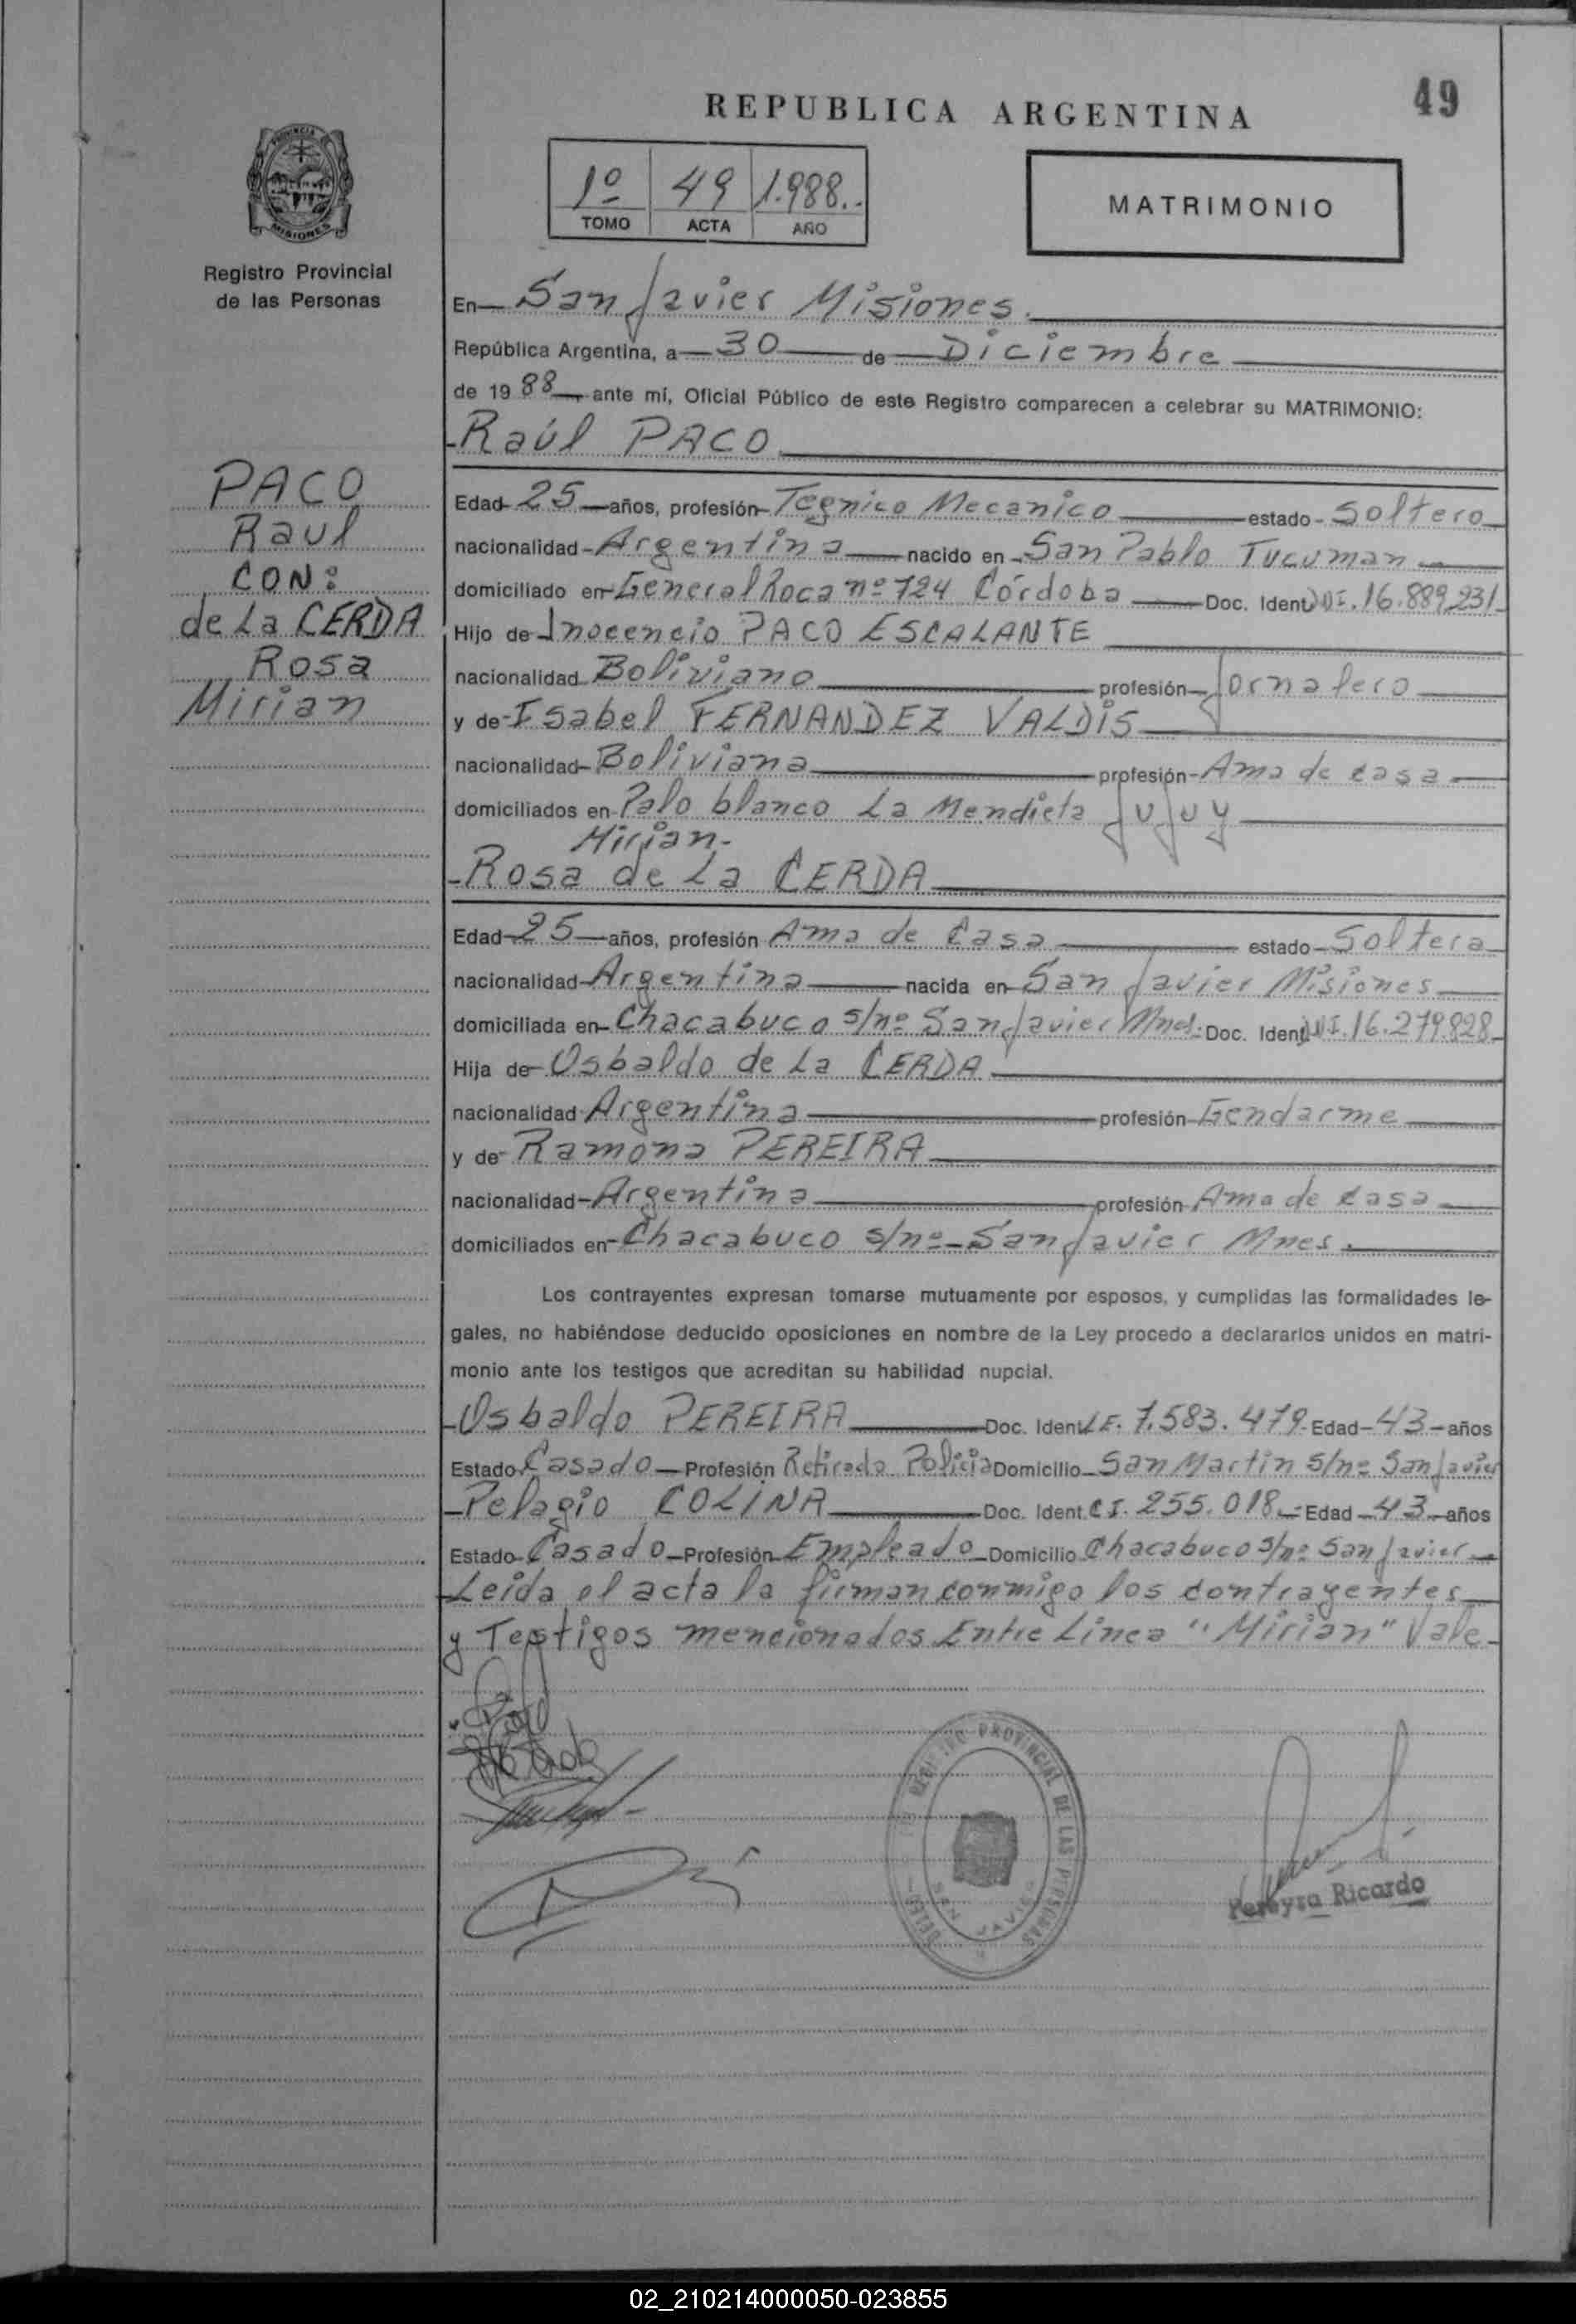 49
REPUBLICA ARGENTINA
PROVINCIA
MISIONES
1º 49 1.988..
TOMO ACTA AÑO
MATRIMONIO
Registro Provincial
de las Personas
En San Javier Misiones.
República Argentina, a 30 de Diciembre
de 1988 ante mí, Oficial Público de este Registro comparecen a celebrar su MATRIMONIO:
Raúl PACO
PACO
Raul
CON:
de La CERDA
Rosa
Mirian
Edad 25 años, profesión Tegnico Mecanico estado Soltero
nacionalidad Argentina nacido en San Pablo Tucuman
domiciliado en General Roca nº 724 Córdoba Doc. Ident DNI. 16.889.231
Hijo de Inocencio PACO ESCALANTE
nacionalidad Boliviano profesión Jornalero
y de Isabel FERNANDEZ VALDIS
nacionalidad Boliviana profesión Ama de casa
domiciliados en Palo blanco La Mendieta Jujuy
Mirian-
Rosa de La CERDA
Edad 25 años, profesión Ama de Casa estado Soltera
nacionalidad Argentina nacida en San Javier Misiones
domiciliada en Chacabuco s/nº San Javier Mnes. Doc. Ident DNI. 16.279.828
Hija de Osbaldo de La CERDA
nacionalidad Argentina profesión Gendarme
y de Ramona PEREIRA
nacionalidad Argentina profesión Ama de casa
domiciliados en Chacabuco s/nº San Javier Mnes.
Los contrayentes expresan tomarse mutuamente por esposos, y cumplidas las formalidades le-
gales, no habiéndose deducido oposiciones en nombre de la Ley procedo a declararlos unidos en matri-
monio ante los testigos que acreditan su habilidad nupcial.
Osbaldo PEREIRA Doc. Ident L.E. 7.583.479 Edad 43 años
Estado Casado Profesión Retirado Policia Domicilio San Martin s/nº San Javier
Pelagio COLINA Doc. Ident. C.I. 255.018 Edad 43 años
Estado Casado Profesión Empleado Domicilio Chacabuco s/nº San Javier
Leida el acta la firman conmigo los contrayentes
y Testigos mencionados Entre Linea "Mirian" Vale
REGISTRO PROVINCIAL DE LAS PERSONAS
SAN JAVIER
Pereyra Ricardo
02_210214000050-023855